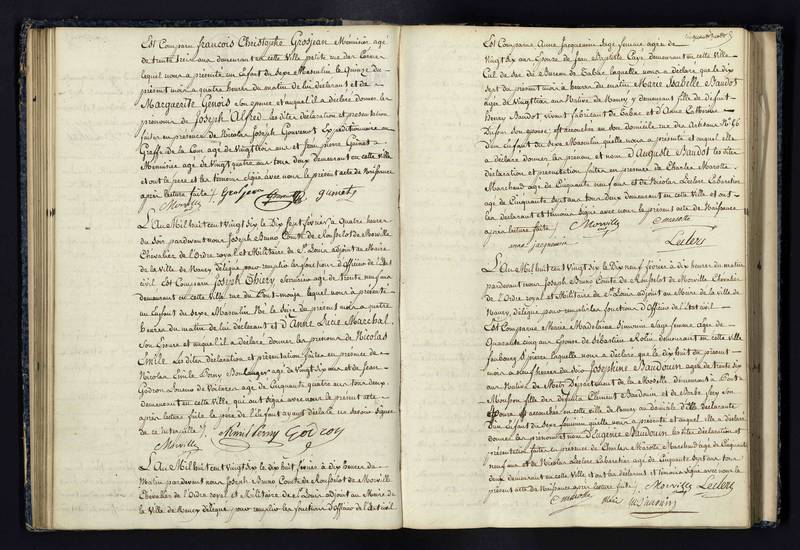 Est Comparu françois Christophe Grosjean Menuisier agé
de trente six ans demeurant en cette Ville petite rue des Carmes
lequel nous a présenté un Enfant du Sexe Masculin Né le Quinze du
présent mois à quatre heures du matin de lui déclarant et de
Marguerite Genois son épouse et auquel il a déclaré donner les
prénoms de Joseph Alfred. les dites déclaration et présentation
faites en présence de Nicolas Joseph expéditionnaire au
Greffe de la Cour agé de Vingt ans et Jean pierre
Menuisier agé de Vingt quatre ans tous deux demeurant en cette ville
et ont le père et les témoins Signé avec nous le présent acte de Naissance
après lecture faite /. Grosjean
Morville
L'An Mil huit cent Vingt Six le Dix Sept février à Quatre heures
du Soir pardevant nous Joseph Bruno Comte de Rousselot de Morville
Chevalier de l'Ordre royal et Militaire de St Louis adjoint au Maire
de la Ville de Nancy délégué pour remplir les fonctions d'Officier de l'Etat
civil. Est Comparu Joseph Thiery agé de trente neuf ans
demeurant en cette Ville rue du Pont-mouja, lequel nous a présenté
un Enfant du Sexe Masculin Né le Seize du présent mois à quatre
heures du matin de lui déclarant et d'Anne Lucie Marchal
Son Epouse et auquel il a déclaré donner les prénoms de Nicolas
Emile. Les dites déclaration et présentation faites en présence de
Nicolas Emile Perny Boulanger agé de Vingt dix ans et de Jean
Godron agé de Cinquante quatre ans tous deux
demeurant en cette Ville, qui ont signé avec nous le présent acte
après lecture faite le père de l'Enfant ayant déclaré ne savoir Signer
de ce interpellé /. Emil Perny Godron
Morville
L'An Mil huit cent Vingt Six le Dix huit février à Dix heures du
Matin pardevant nous Joseph Bruno Comte de Rousselot de Morville
Chevalier de l'Ordre royal et Militaire de St Louis adjoint au Maire de
la Ville de Nancy délégué pour remplir les fonctions d'Officier de l'Etat civil
Est Comparue Anne Jacquemin Sage femme agée de
Vingt Six ans Epouse de Jean Baptiste Caye demeurant en cette Ville
Cul de Sac du Bureau de Tabac laquelle nous a déclaré que le dix
Sept du présent mois à heures du matin Marie Isabelle Baudot
agée de Vingt Six ans Native de Nancy y demeurant fille de défunt
Henry Baudot vivant fabricant de Tabac et d'Anne Catherine
son épouse; est accouchée en son domicile rue des Artisans No 56
d'un Enfant du Sexe Masculin quelle nous a présenté et auquel elle
a déclaré donner les prénom et nom d'Auguste Baudot. les dites
déclaration et présentation faites en présence de Charles Marotte
Marchand agé de Cinquante neuf ans et de Nicolas Leclerc Cabaretier
agé de Cinquante Sept ans tous deux demeurant en cette Ville et ont
les déclarant et témoins Signé avec nous le présent acte de Naissance
après lecture faite /. Morville C marotte
anne jacquemin Leclerc
L'An Mil huit cent Vingt Six le Dix Neuf février à Dix heures du matin
pardevant nous Joseph Bruno Comte de Rousselot de Morville Chevalier
de l'Ordre royal et Militaire de St Louis adjoint au Maire de la ville de
Nancy, délégué pour remplir les fonctions d'Officier de l'Etat civil
Est Comparue Marie Madelaine Simonin Sage femme agée de
Quarante cinq ans épouse de Sébastien Kolin demeurant en cette ville
faubourg St pierre laquelle nous a déclaré que le dix huit du présent
mois à neuf heures du Soir Josephine Baudouin agée de trente Six
ans Native de Metz Département de la Moselle demeurant à Pont à
Mousson fille des défunts Clement Baudouin et de Barbe Son
Epouse est accouchée en cette ville de Nancy au domicile d'elle déclarante
d'un Enfant du Sexe féminin quelle nous a présenté et auquel elle a déclaré
donner les prénom et nom d'Eugenie Baudouin. les dites déclaration et
présentation faites en présence de Charles Marotte Marchand agé de Cinquante
neuf ans et de Nicolas Leclerc Cabaretier agé de Cinquante Sept ans tous
deux demeurant en cette Ville et ont les déclarant et témoins Signé avec nous le
présent acte de Naissance après lecture faite /. Morville Leclerc
C marotte